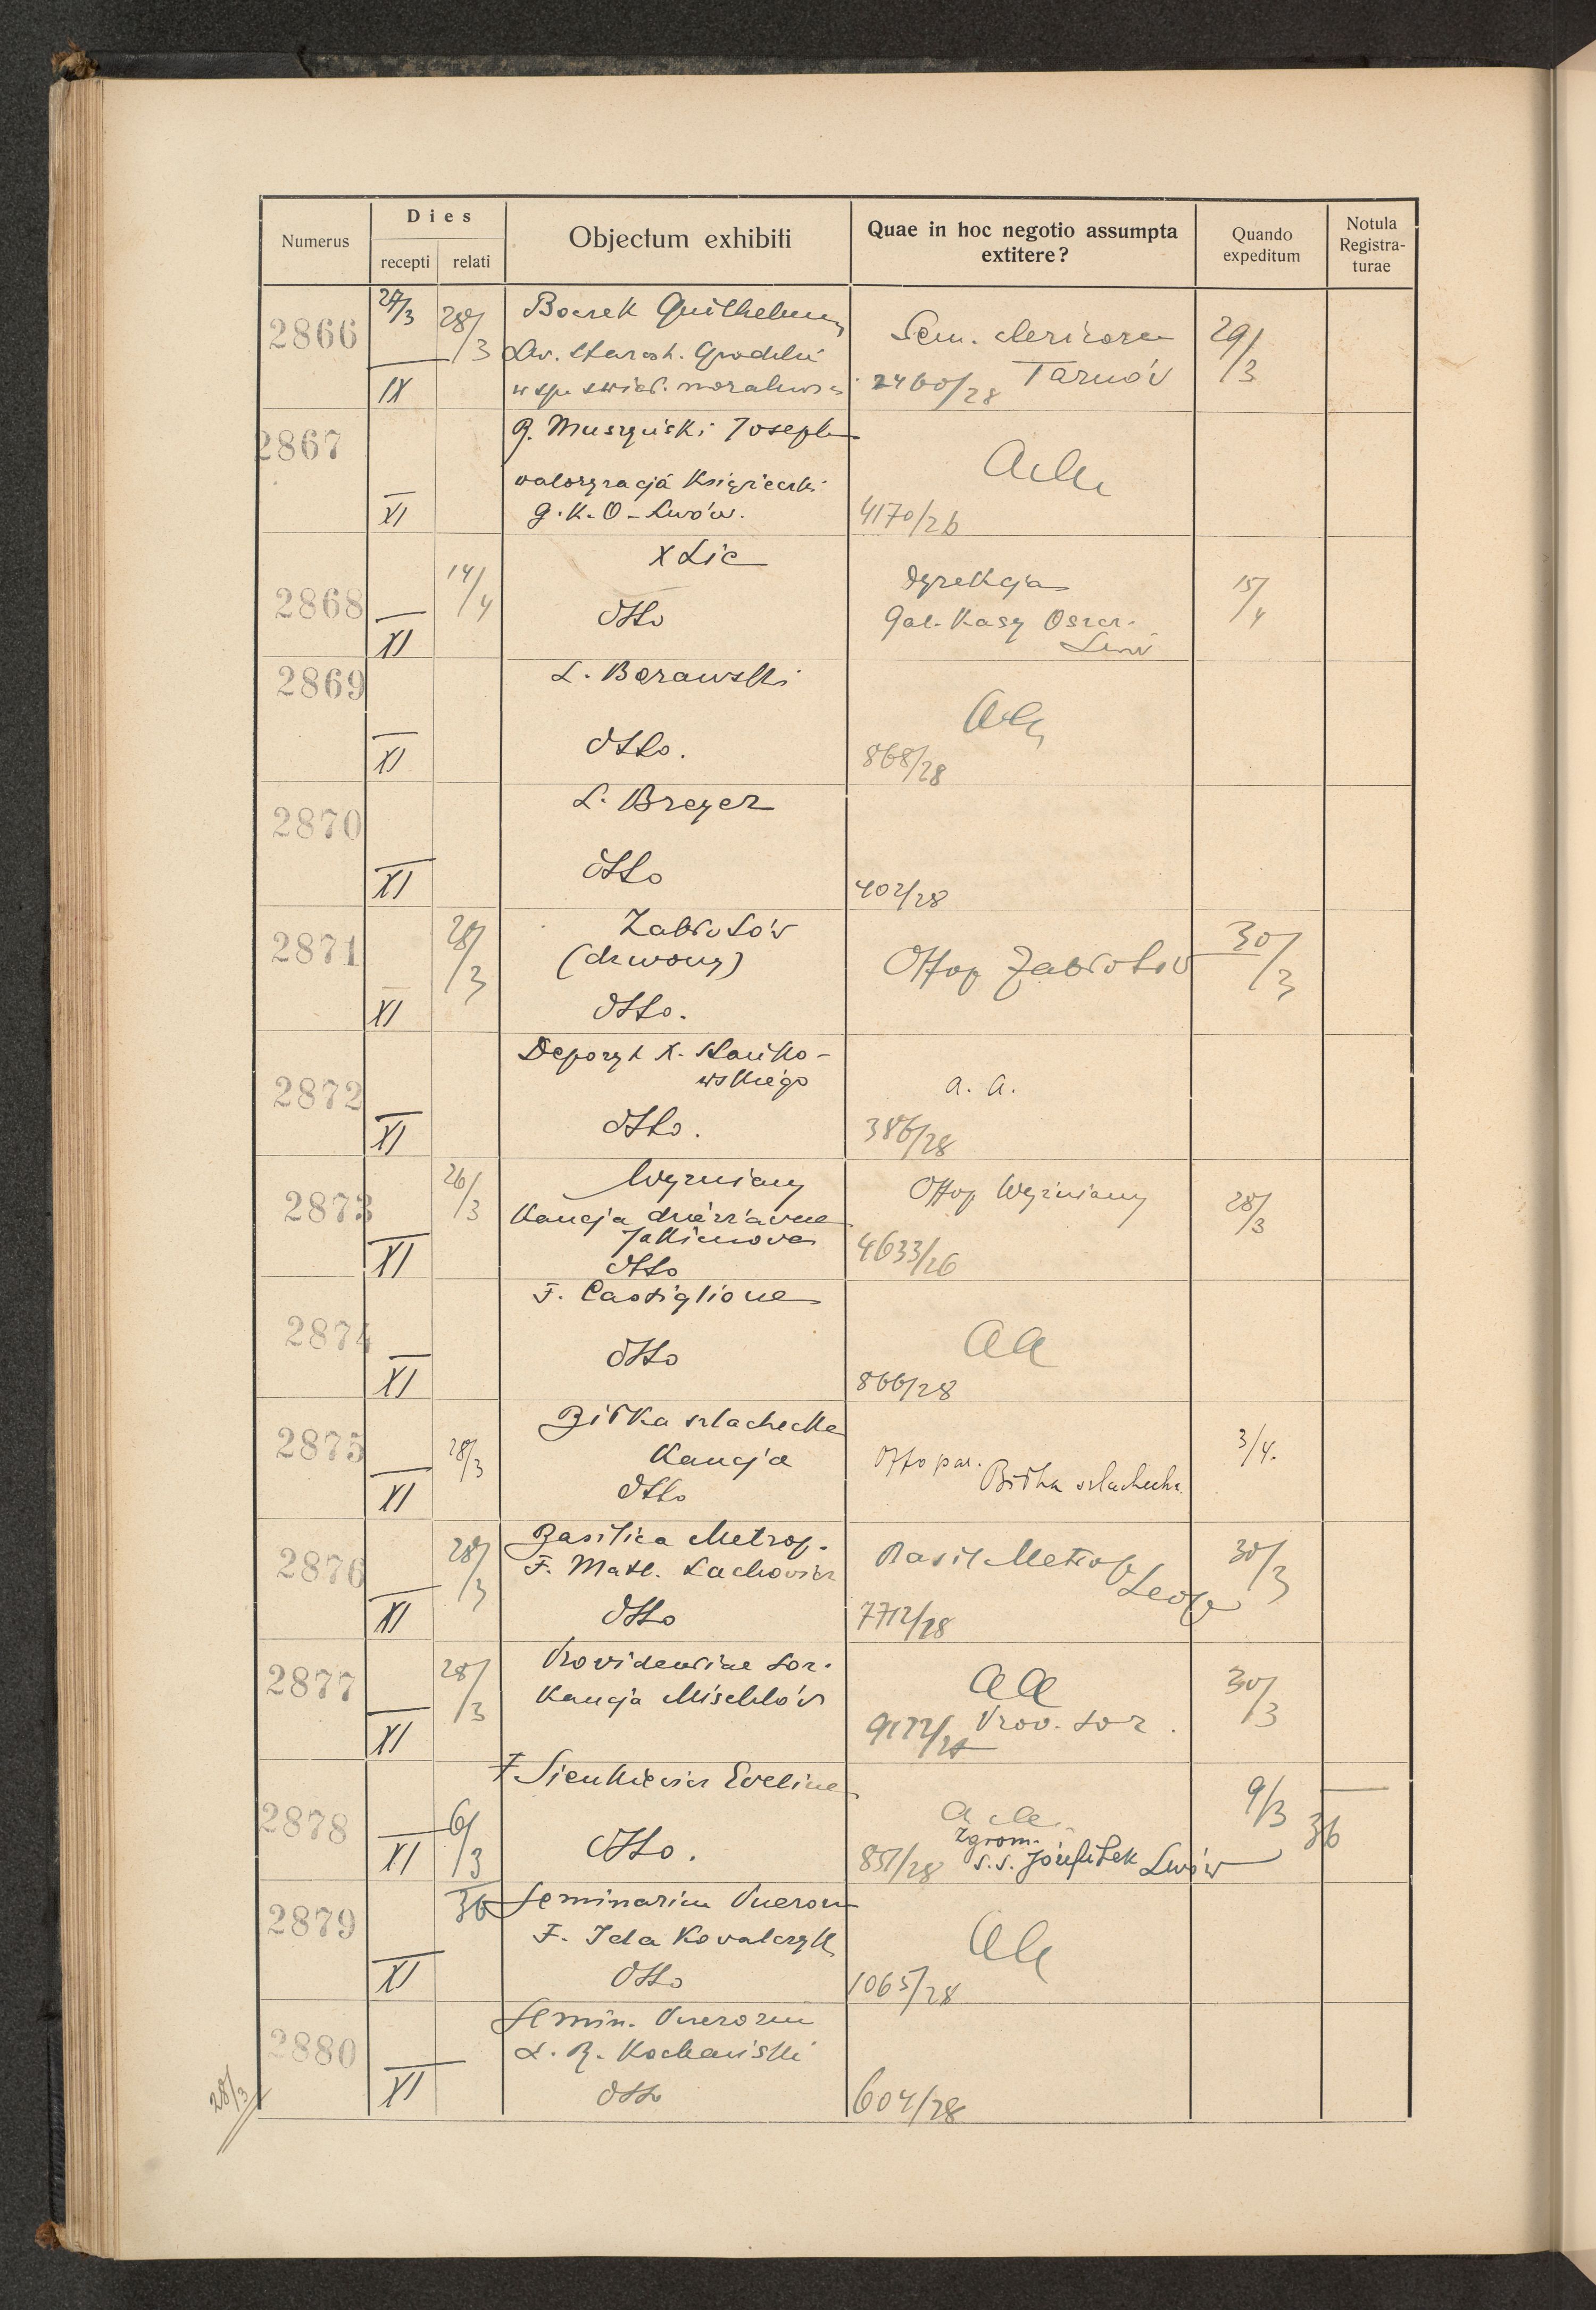 Numerus
Dies
recepti
relati
Objectum exhibiti
Quae in hoc negotio assumpta
extitere?
Quando
expeditum
Notula
Registra-
turae
2866
27/3
28/3
IX
Guilhelmus
Lw. Starost. Gródecki
Sem. clericorum
2460/28 Tarnów
29/3
2867
XI
R. Muszyński Joseph
waloryzacja Książeczki
G.K.O - Lwów.
Aa
4170/26
2868
XI
14/4
X Lic
dtto
dyrekcja
Gal. Kasy Oszcz.
Lwów
15/4
2869
XI
L. Borawski
dtto.
Aa
868/28
2870
XI
L. Breyer
dtto
402/28
2871
XI
28/3
Zabłotów
(dzwony)
dtto.
Offop Zabłotów
30/3
2872
XI
Depozyt X. Stańko-
wskiego
dtto.
a. a.
386/28
2873
XI
26/3
Wyżniany
Kaucja dzierżawne
dtto
Offop Wyżniany
4633/26
28/3
2874
XI
F. Castiglione
dtto
aa
866/28
2875
XI
28/3
Biłka szlachecka
Kaucja
dtto
Offo par.
Biłka szlachecka
3/4.
2876
XI
28/3
Basilica Metrop.
F. Math. Lachowicz
dtto
Basil Metrop
Leop
7712/28
30/3
2877
XI
28/3
Providentiae Sor.
Kaucja
aa
Prov. Sor.
30/3
2878
XI
6/3
36
F Sienkiewicz Eveline
dtto.
a a
Zgrom.
857/28 S.S. Józefitek Lwów
9/3
36
2879
XI
Seminarium Puerorum
F. Ida Kowalczyk
dtto
aa
1065/28
2880
XI
Semin. Puerorum
L. R. Kochański
dtto
604/28
28/3